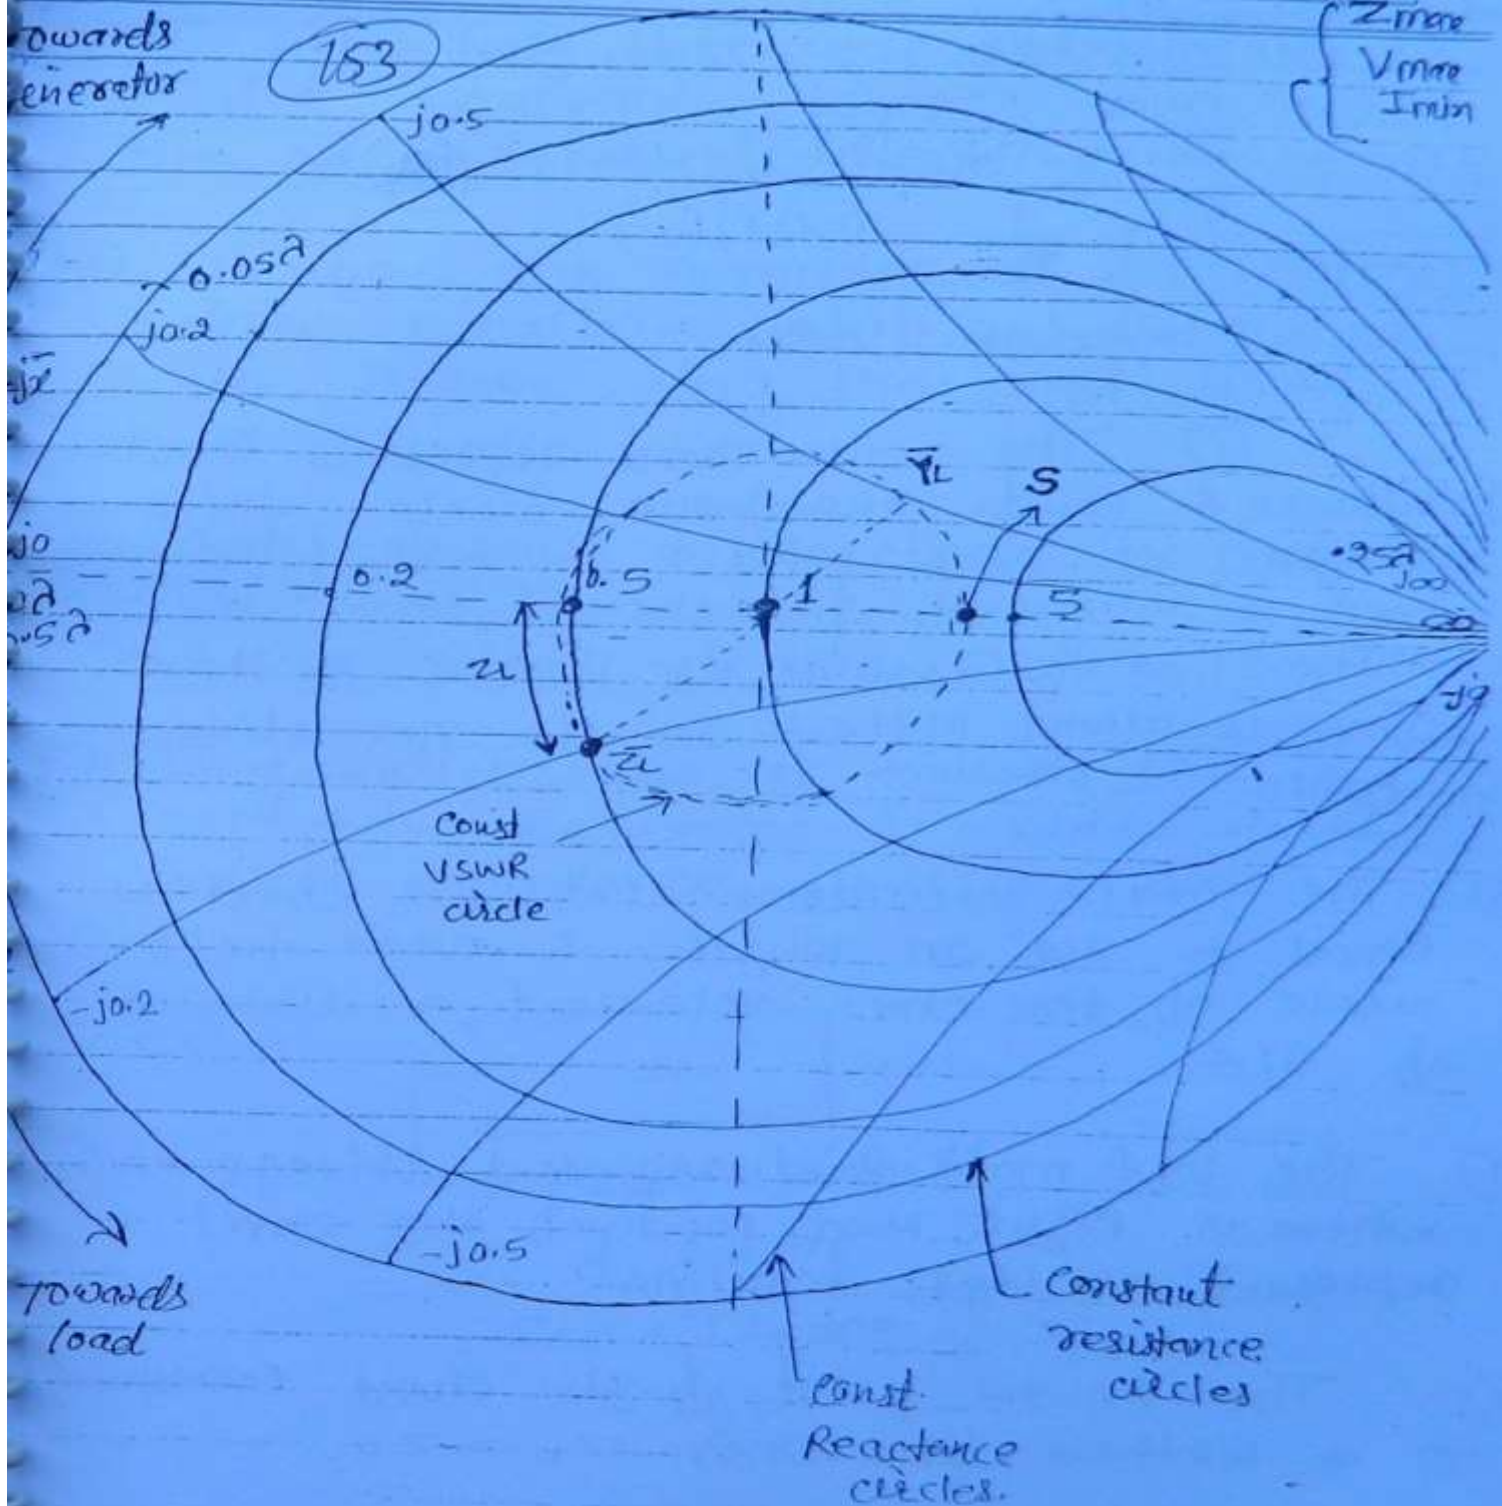 owards
enerator
153
Zmax
Vmax
Imin
j0.5
0.05λ
j0.2
jx̄
ȲL
S
j0
0λ
0.5λ
0.2
0.5
1
5
.25λ
j∞
∞
ZL
Z̄L
Const
VSWR
circle
-j0.2
-j0.5
Towards
load
Constant
resistance
circles
Const.
Reactance
circles.